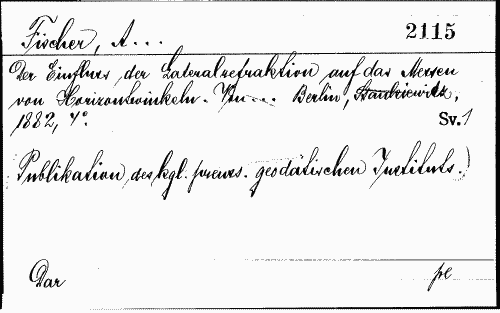 Fischer, A... 2115
Der Einfluss der Lateralrefraktion auf das Messen
von Horizontwinkeln. Berlin, Stankiewitz,
1882, 4°. Sv. 1
Publikation des kgl. preuss. geodätischen Instituts.)
Dar